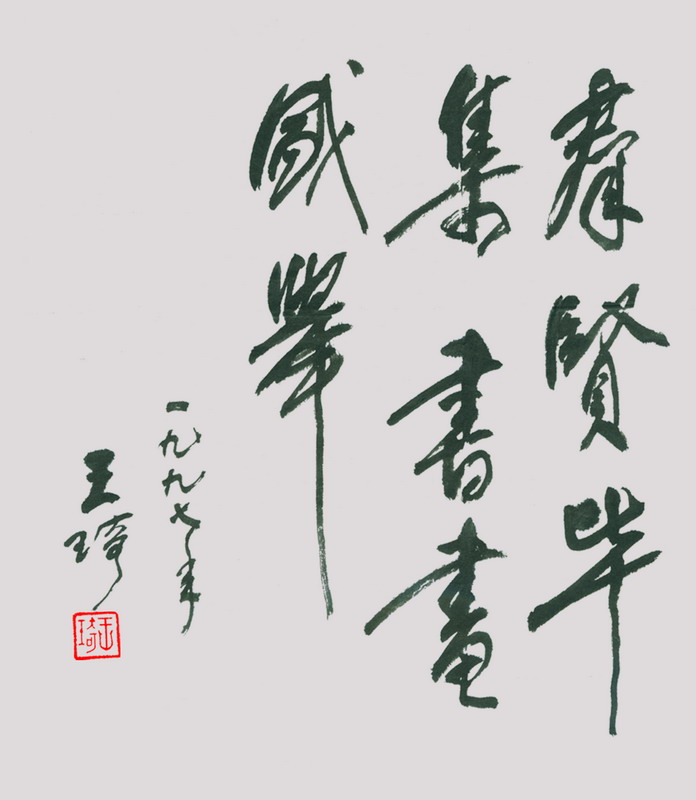 羣賢畢
集書畫
盛舉
一九九七年
王琦
王琦